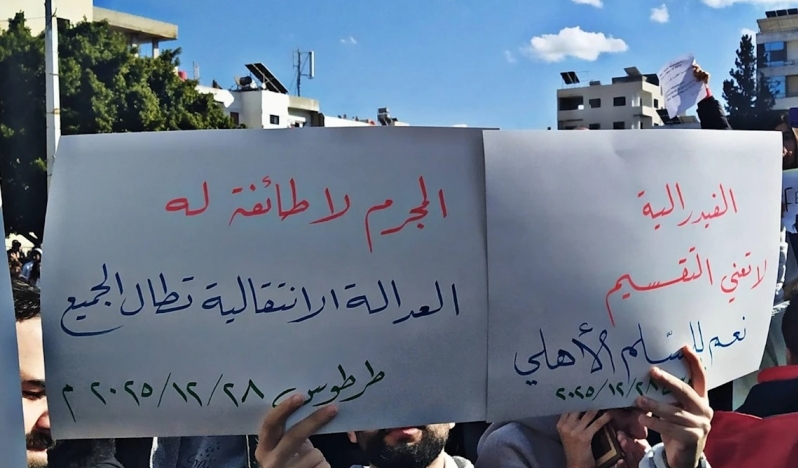 الفيدرالية
لا تعني التقسيم
نعم للسلم الأهلي
٢٠٢٥/١٢/٢٨
المجرم لا طائفة له
العدالة الانتقالية تطال الجميع
طرطوس ٢٠٢٥/١٢/٢٨ م